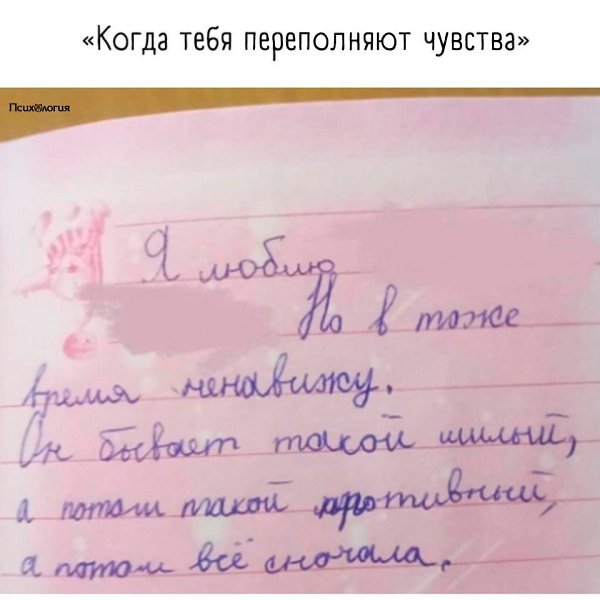 «Когда тебя переполняют чувства»
Психология
Я люблю
Но в тоже
время ненавижу.
Он бывает такой милый,
а потом такой противный,
а потом всё сначала.